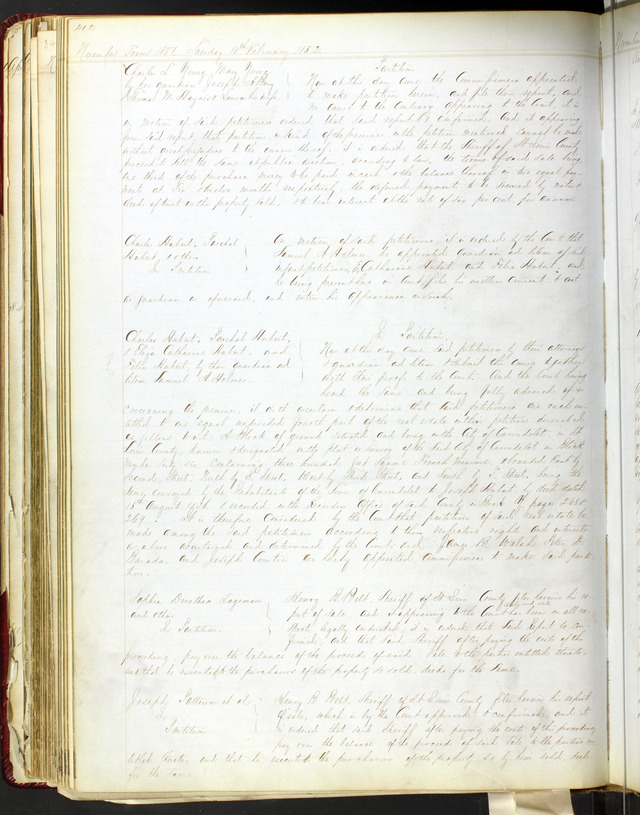 402
November Term 1851 Tuesday 10th February 1852
Charles L Young, Mary Young
by her guardian Joseph
In Partition
Now at this day come the Commissioners appointed
to make partition herein, and file their report, and
no cause to the contrary appearing to the Court, it is
on motion of said petitioners ordered that said report be confirmed, and it appearing
from said report that partition in kind of the premises in the petition mentioned cannot be made
without great prejudice to the owners thereof, it is ordered that the Sheriff of St Louis County
proceed to sell the same at public auction according to law, the terms of said sale being
one third of the purchase money to be paid in cash & the balance thereof in two equal pay
ments at six & twelve months respectively, the deferred payments to be secured by note &
deed of trust on the property sold, & to bear interest at the rate of six per cent per annum
Charles Hubert, Paschal
Hubert, & others
In Partition
On motion of said petitioners it is ordered by the Court that
Samuel A Holmes be appointed guardian ad litem of said
infant petitioners, Catharine Hubert and Felix Hubert, and
he being present here in Court files his written consent to act
as guardian as aforesaid, and enters his appearance accordingly
Charles Hubert, Paschal Hubert,
& Eliza Catharine Hubert and
Felix Hubert by their Guardian ad
litem Samuel A Holmes.
In Partition.
Now at this day come said petitioners by their attorney
& guardian ad litem & submit this cause
with their proofs to the Court. And the Court having
heard the same and being fully advised of &
concerning the premises, doth ascertain & determine that said petitioners are each en
titled to one equal undivided fourth part of the real estate in their petition described
as follows to wit: A Block of ground situated and being in the City of Carondelet, in St
Louis County, known & designated on the plat or survey of the said City of Carondelet as Block
Number Sixty six Containing three hundred feet square French measure, & bounded East by
Second Street, North by Street, West by Third Street, and South by Street, being the
same conveyed by the Inhabitants of the Town of Carondelet to Joseph Hubert by deed dated
18th August & recorded in the Recorders Office of said County in Book pages 268 &
269. It is therefore considered by the Court that partition of said real estate be
made among the said petitioners according to their respective rights and interests
as above ascertained and determined by the Court, and James
and Joseph are hereby appointed commissioners to make said parti
tion.
Sophia Dorothea Lagemann
and others
In Partition.
Henry B Belt Sheriff of St Louis County files herein his re
port of sale and it appearing to the Court
it is ordered that said report be con
firmed, and that said Sheriff after paying the costs of this
proceeding pay over the balance of the proceeds of said Sale to the parties entitled thereto
and that he execute to the purchasers of the property so sold, deeds for the same.
Joseph Patterson et al
In
Partition
Henry B Belt, Sheriff of St Louis County, files herein his report
of sale, which is by the Court approved & confirmed, and it
is ordered that said Sheriff after paying the costs of this proceeding
pay over the balance of the proceeds of said Sale, to the parties en
titled thereto, and that he execute to the purchasers of the property so by him sold, deeds
for the same.